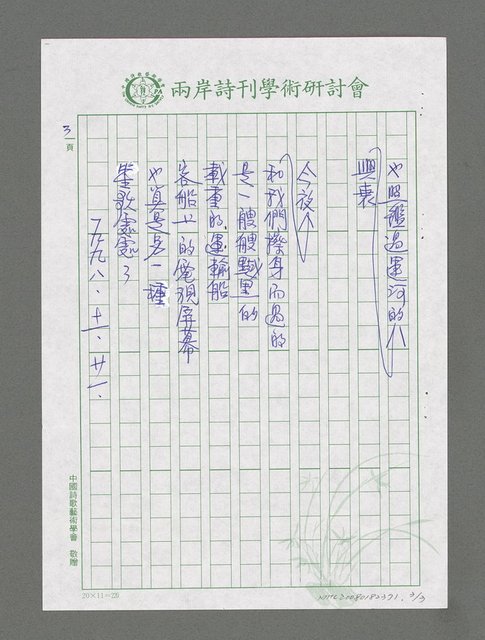 兩岸詩刊學術研討會
3
頁
也照鑑過運河的
興衰
今夜
和我們擦身而過的
是一艘艘黝黑的
載重的運輸船
客船上的電視屏幕
也真是另一種
笙歌處處了
一九九八.十一.廿一.
中國詩歌藝術學會 敬贈
20×11=220
NMTL20080182371. 3/3